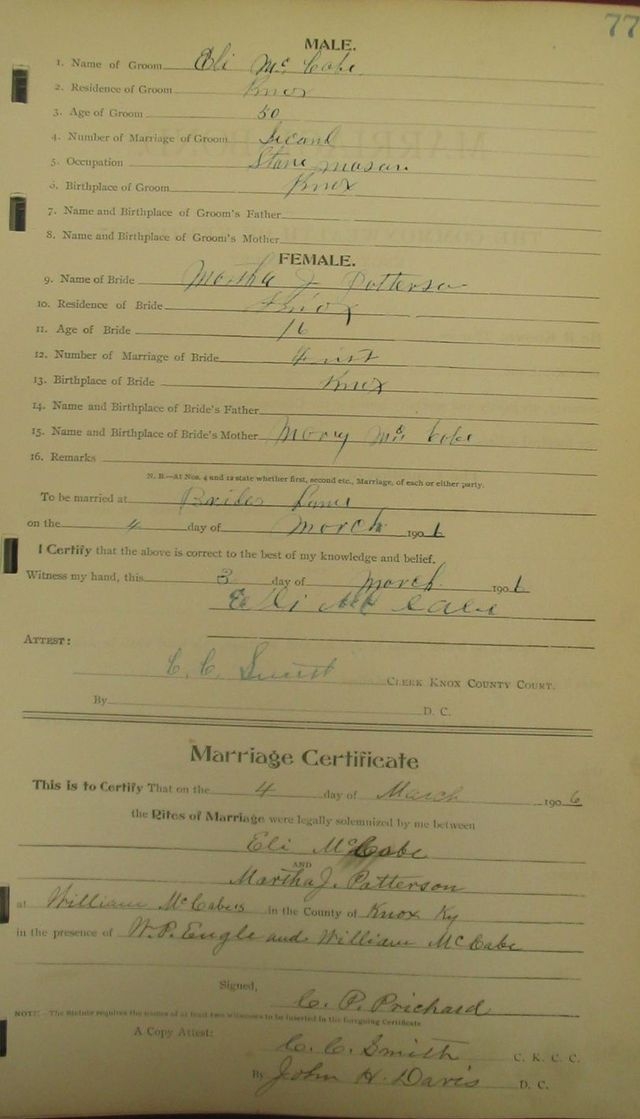 77
MALE.
1. Name of Groom Eli McCabe
2. Residence of Groom Knox
3. Age of Groom 50
4. Number of Marriage of Groom Second
5. Occupation Stone mason
6. Birthplace of Groom Knox
7. Name and Birthplace of Groom's Father
8. Name and Birthplace of Groom's Mother
FEMALE.
9. Name of Bride Martha J Patterson
10. Residence of Bride Knox
11. Age of Bride 16
12. Number of Marriage of Bride First
13. Birthplace of Bride Knox
14. Name and Birthplace of Bride's Father
15. Name and Birthplace of Bride's Mother Mary McCabe
16. Remarks
N. B.—At Nos. 4 and 12 state whether first, second etc., Marriage, of each or either party.
To be married at Brides
on the 4 day of March 1906
I Certify that the above is correct to the best of my knowledge and belief.
Witness my hand, this 3 day of March 1906
Eli McCabe
ATTEST:
C. C. Smith CLERK KNOX COUNTY COURT.
By D. C.
Marriage Certificate
This is to Certify That on the 4 day of March 1906
the Rites of Marriage were legally solemnized by me between
Eli McCabe
AND
Martha J. Patterson
at William McCabes in the County of Knox Ky
in the presence of W. P. Engle and William McCabe
Signed,
C. P. Prichard
NOTE:—The Statute requires the names of at least two witnesses to be inserted in the foregoing Certificate
A Copy Attest:
C. C. Smith C. K. C. C.
By John H. Davis D. C.